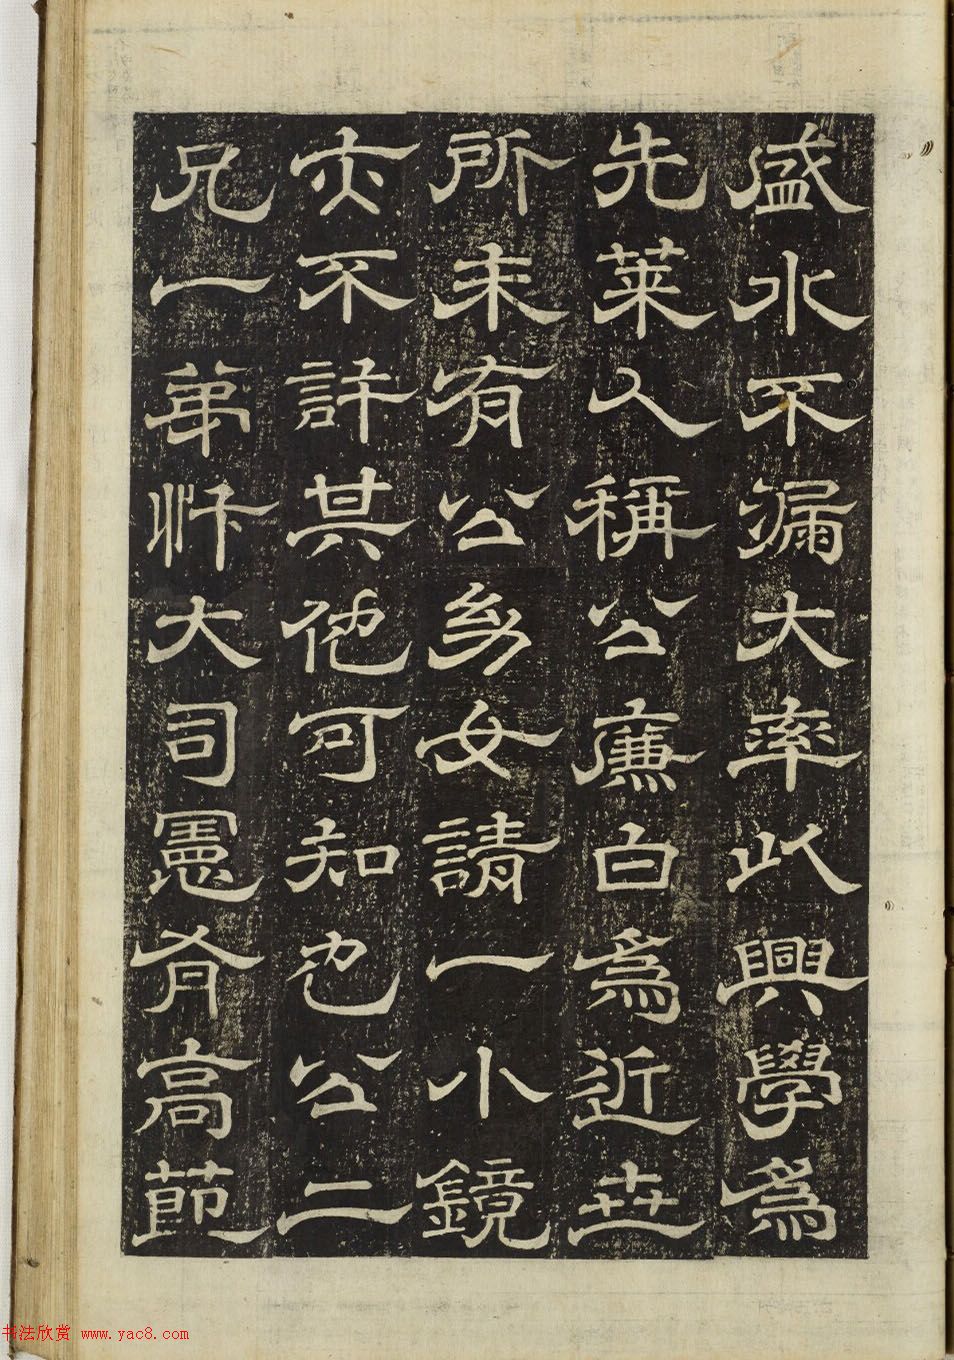 盛水不漏大率以興學為
先萊人稱公廉白為近世
所未有公幼女請一小鏡
亦不許其他可知也公二
兄一弟忭大司憲有高節
书法欣赏 www.yac8.com